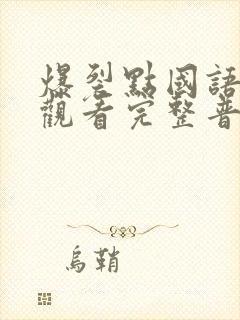 爆裂點國語
觀看完整普
烏鞘